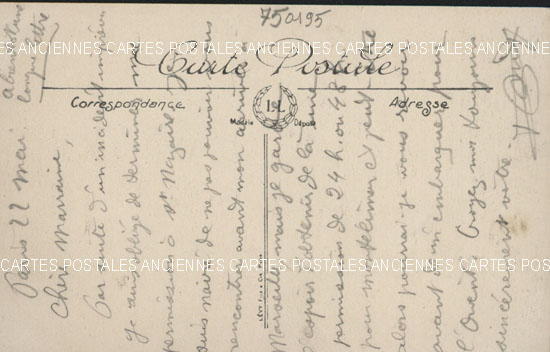 750195
Carte Postale
Correspondance
Adresse
ISL
Modèle Déposé
CARTES POSTALES ANCIENNES CARTES POSTALES ANCIENNES CARTES POSTALES
CARTES POSTALES ANCIENNES CARTES POSTALES ANCIENNES CARTES POSTALES
CARTES POSTALES ANCIENNES CARTES POSTALES ANCIENNES CARTES POSTALES
à bientôt une
longue lettre
Paris 22 mai
Chère Marraine,
Par suite d'un incident
je suis obligé de terminer ma
permission à St. Nazaire. Je
suis navré de ne pas pouvoir vous
rencontrer avant mon
Marseille mais je garde
l'espoir d'obtenir de là une
permission de 24 h. ou 48
pour
alors pourrai-je vous revoir
avant mon embarquement pour
l'Orient. Croyez moi toujours
sincèrement vôtre.